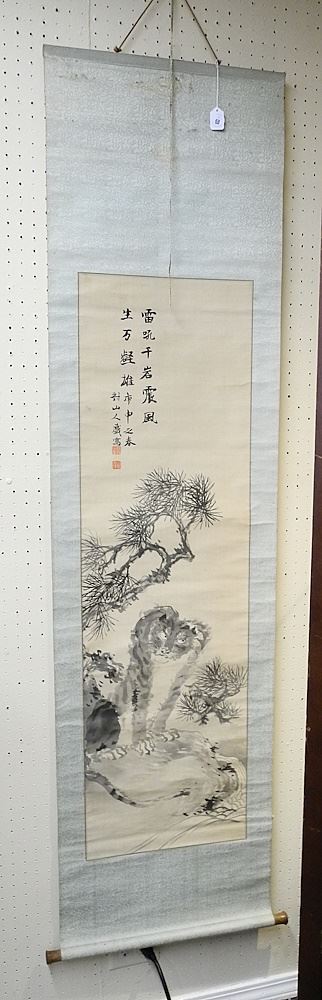 雷吼千岩震風
生万壑雄 庚申之春
對山人寫